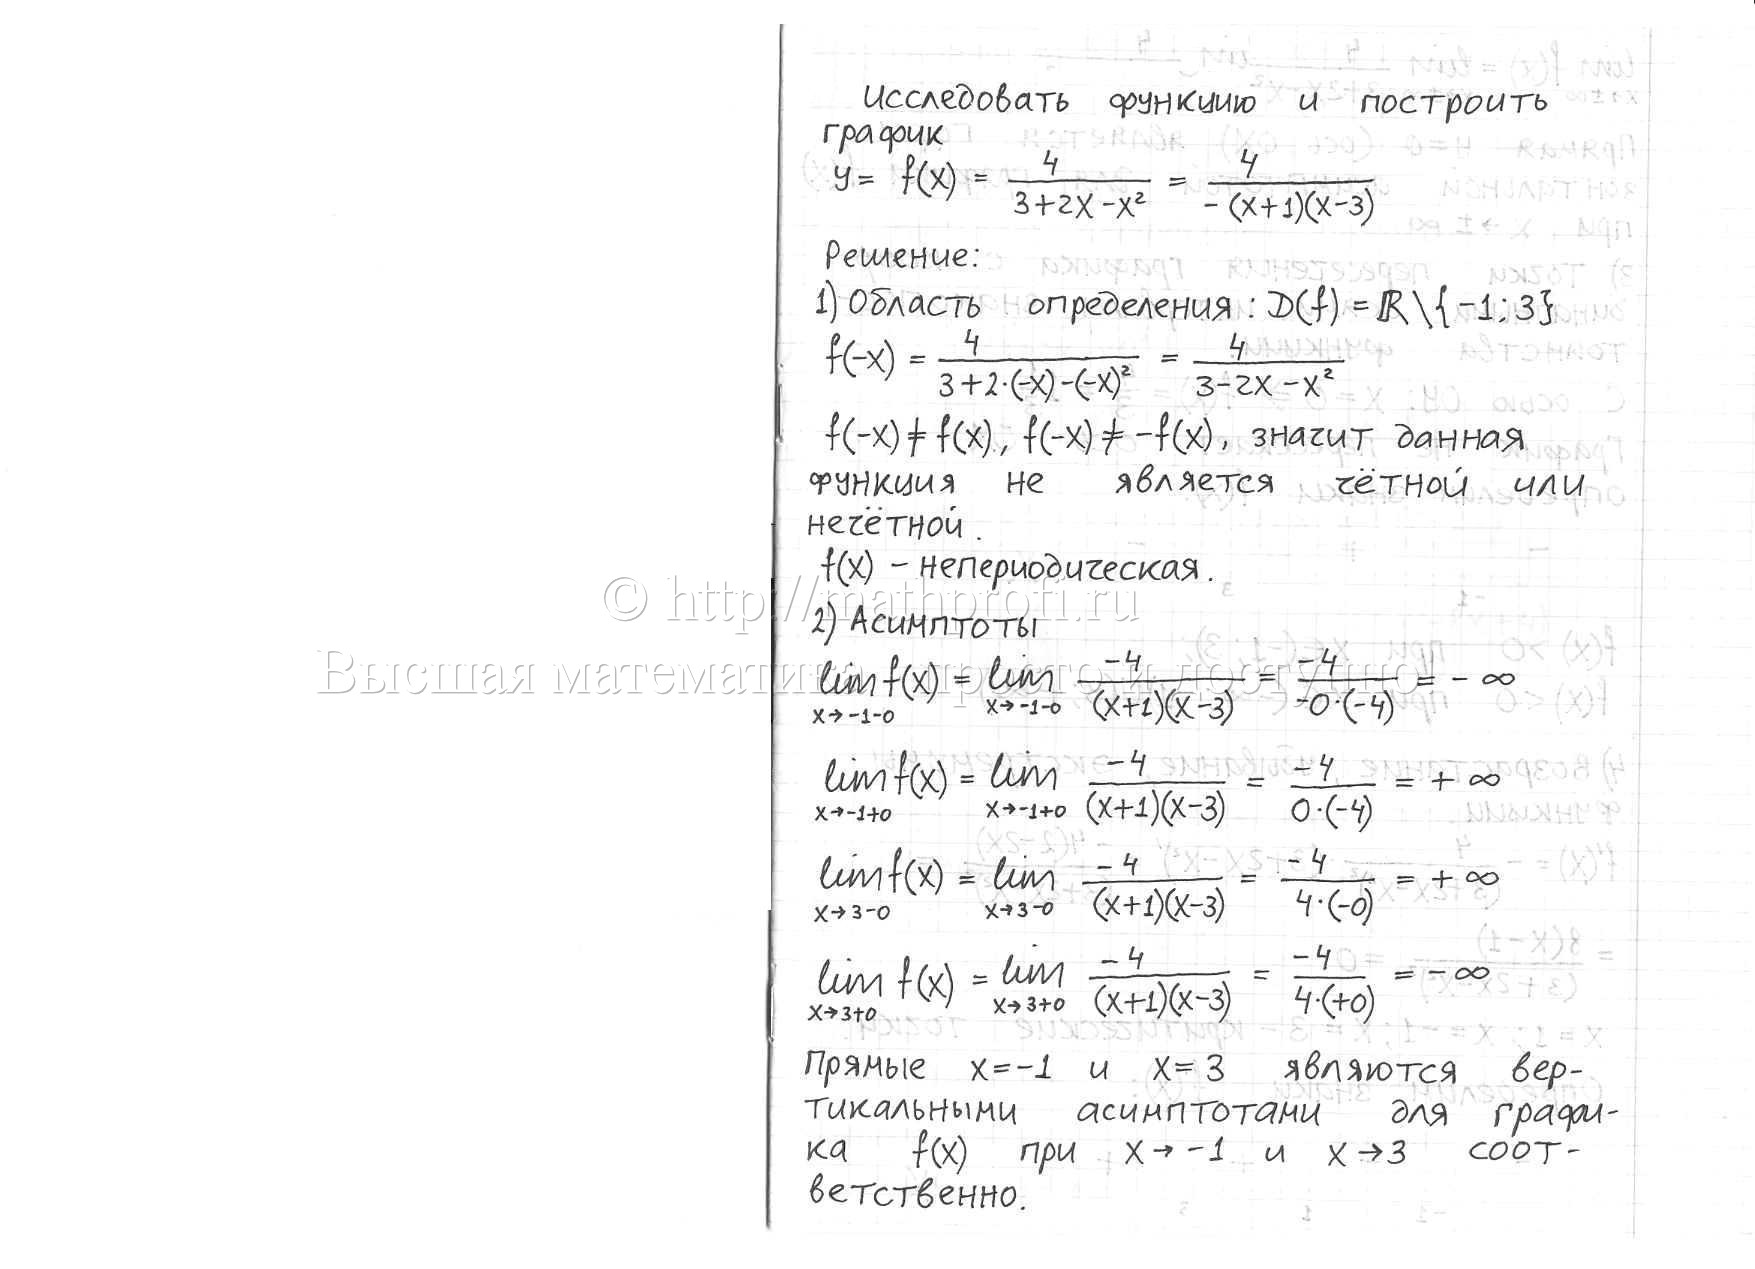 Исследовать функцию и построить
график
y = f(x) = 4/(3+2x-x²) = 4/(-(x+1)(x-3))
Решение:
1) Область определения: D(f) = ℝ\{-1; 3}
f(-x) = 4/(3+2·(-x)-(-x)²) = 4/(3-2x-x²)
f(-x) ≠ f(x), f(-x) ≠ -f(x), значит данная
функция не является чётной или
нечётной.
f(x) – непериодическая.
© http://mathprofi.ru
2) Асимптоты
Высшая математика – просто и доступно!
lim x→-1-0 f(x) = lim x→-1-0 -4/((x+1)(x-3)) = -4/(-0·(-4)) = -∞
lim x→-1+0 f(x) = lim x→-1+0 -4/((x+1)(x-3)) = -4/(0·(-4)) = +∞
lim x→3-0 f(x) = lim x→3-0 -4/((x+1)(x-3)) = -4/(4·(-0)) = +∞
lim x→3+0 f(x) = lim x→3+0 -4/((x+1)(x-3)) = -4/(4·(+0)) = -∞
Прямые x=-1 и x=3 являются вер-
тикальными асимптотами для графи-
ка f(x) при x→-1 и x→3 соот-
ветственно.